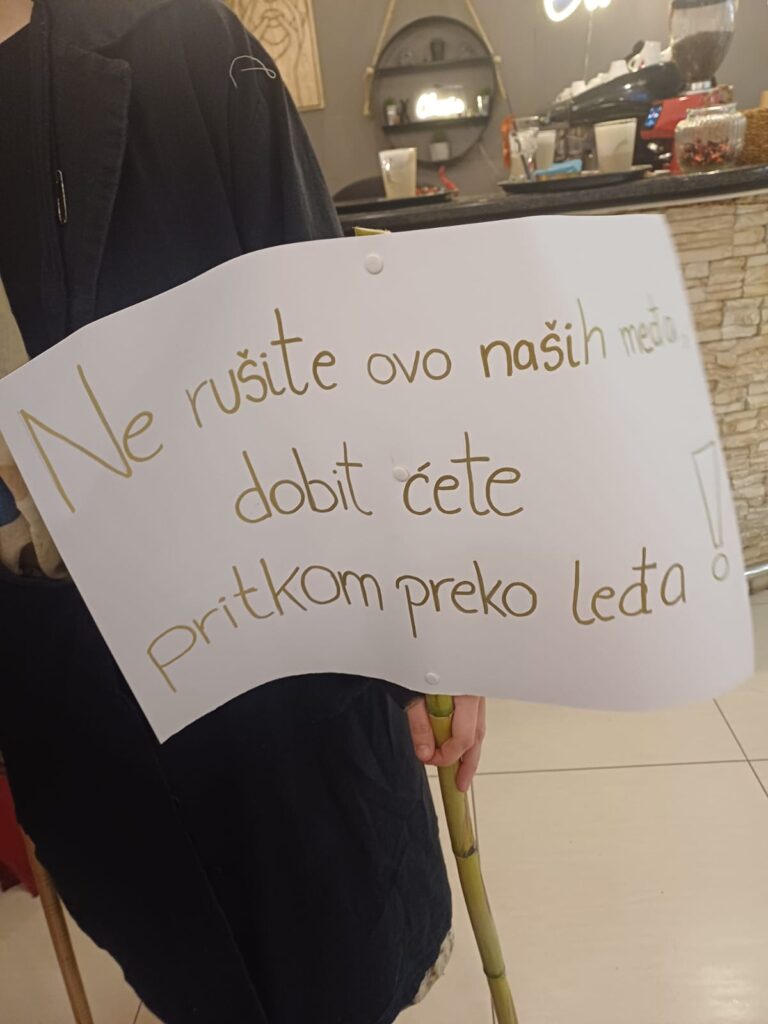 Ne rušite ovo naših međa,
dobit ćete
pritkom preko leđa!